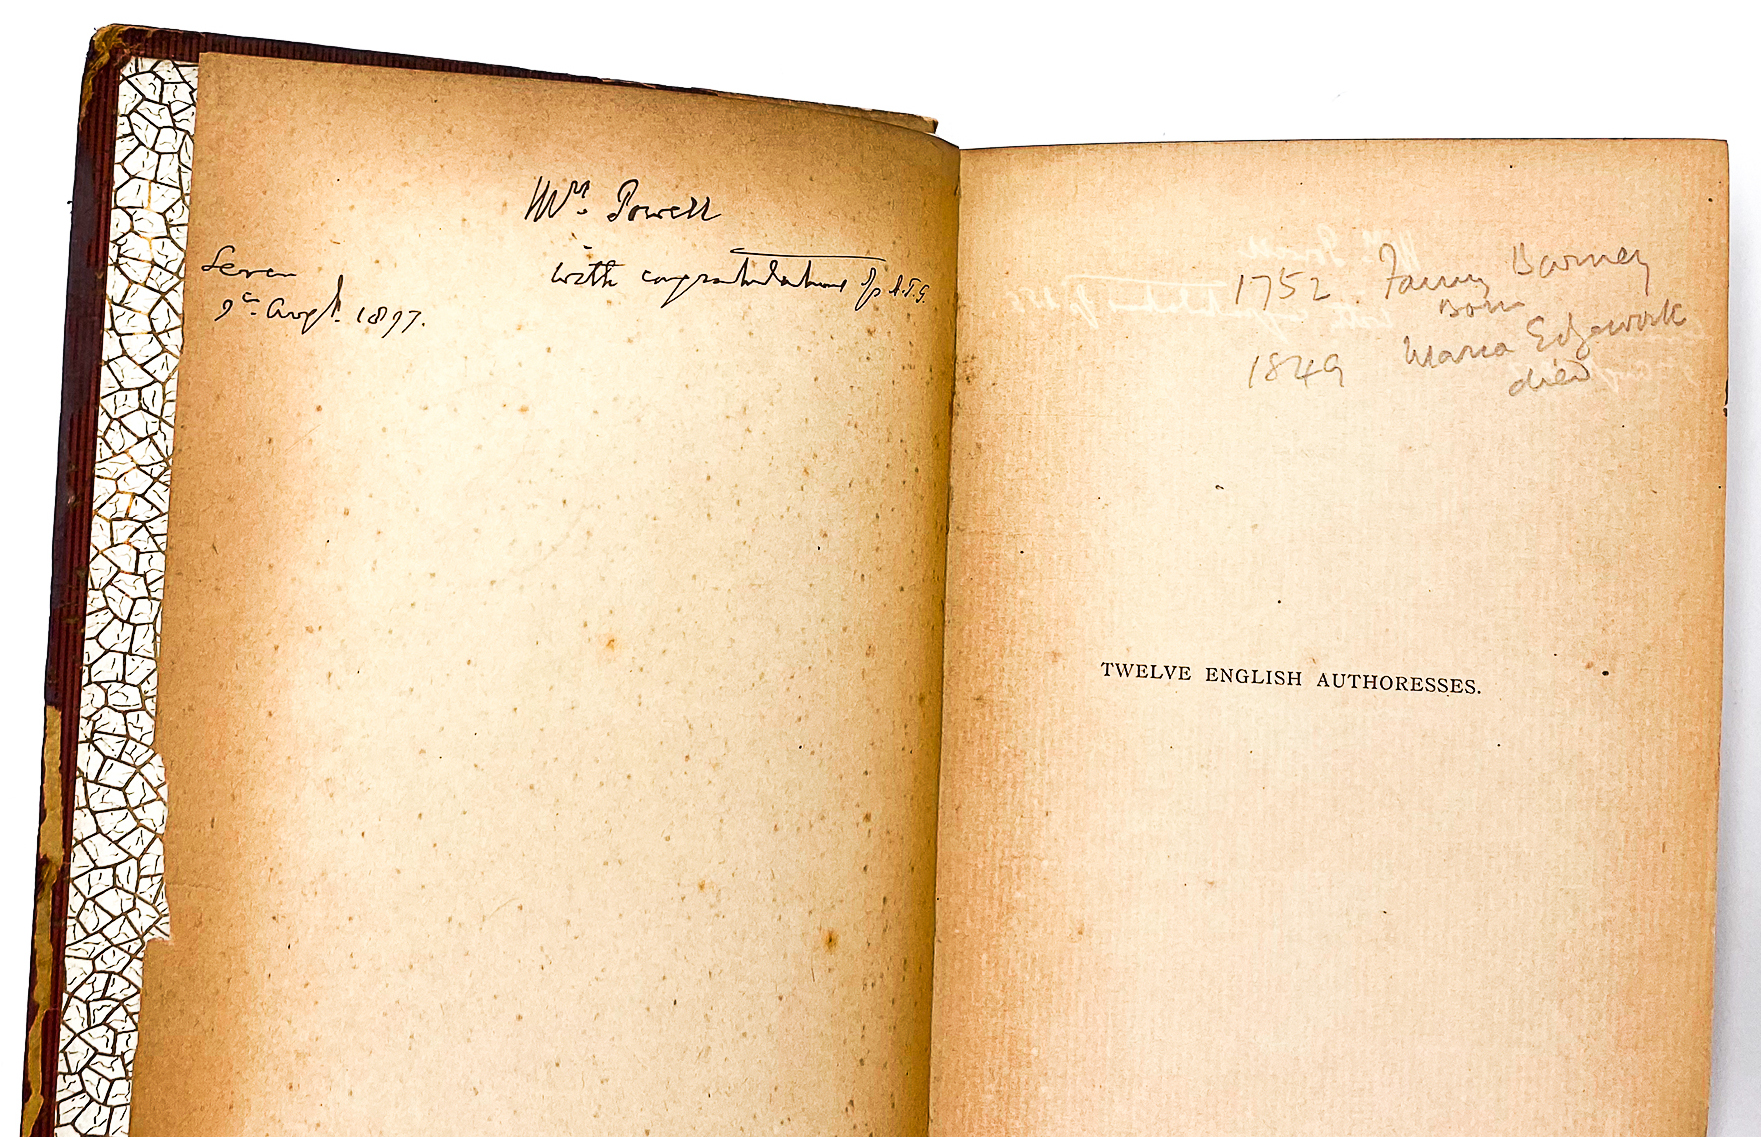 Mrs. Powell
with congratulations
9th Augt. 1897.
1752 Fanny Burney
Born
1849 Maria Edgeworth
died
TWELVE ENGLISH AUTHORESSES.